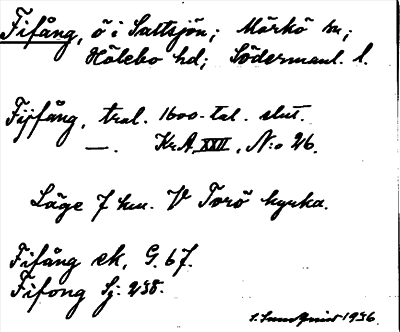 Fifång, ö i Saltsjön; Mörkö sn;
Hölebo hd; Södermanl. l.
Fijfång, tral. 1600-tal. slut.
—. Kr.A. XXII, N:o 26.
Läge 7 km. V Torö kyrka.
Fifång ek, G. 67.
Fifong Sj: 238.
1936.